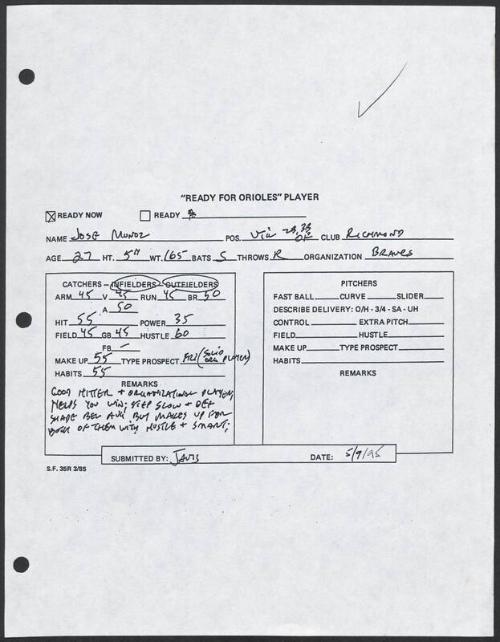 "READY FOR ORIOLES" PLAYER
☒ READY NOW ☐ READY
NAME JOSE MUNOZ POS. Util 2B, 3B OF CLUB RICHMOND
AGE 27 HT. 5'11 WT. 165 BATS S THROWS R ORGANIZATION BRAVES
CATCHERS – INFIELDERS – OUTFIELDERS
ARM 45 V 45 RUN 45 BR 50
A 50
HIT 55 POWER 35
FIELD 45 GB 45 HUSTLE 60
FB –
MAKE UP 55 TYPE PROSPECT (SOLID ORG PLAYER)
HABITS 55
REMARKS
GOOD HITTER + ORGANIZATIONAL PLAYER,
HELPS YOU WIN; STEP SLOW + DEF
SHADE BEL AVG BUT MAKES UP FOR
BOTH OF THEM WITH HUSTLE + SMARTS;
PITCHERS
FAST BALL CURVE SLIDER
DESCRIBE DELIVERY: O/H - 3/4 - SA - UH
CONTROL EXTRA PITCH
FIELD HUSTLE
MAKE UP TYPE PROSPECT
HABITS
REMARKS
SUBMITTED BY: DATE: 5/9/95
S.F. 35R 3/85